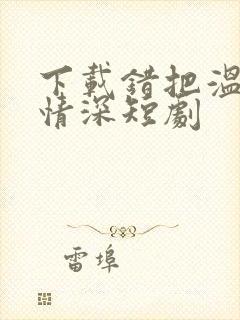 下載錯把溫
情深短劇
雷埠